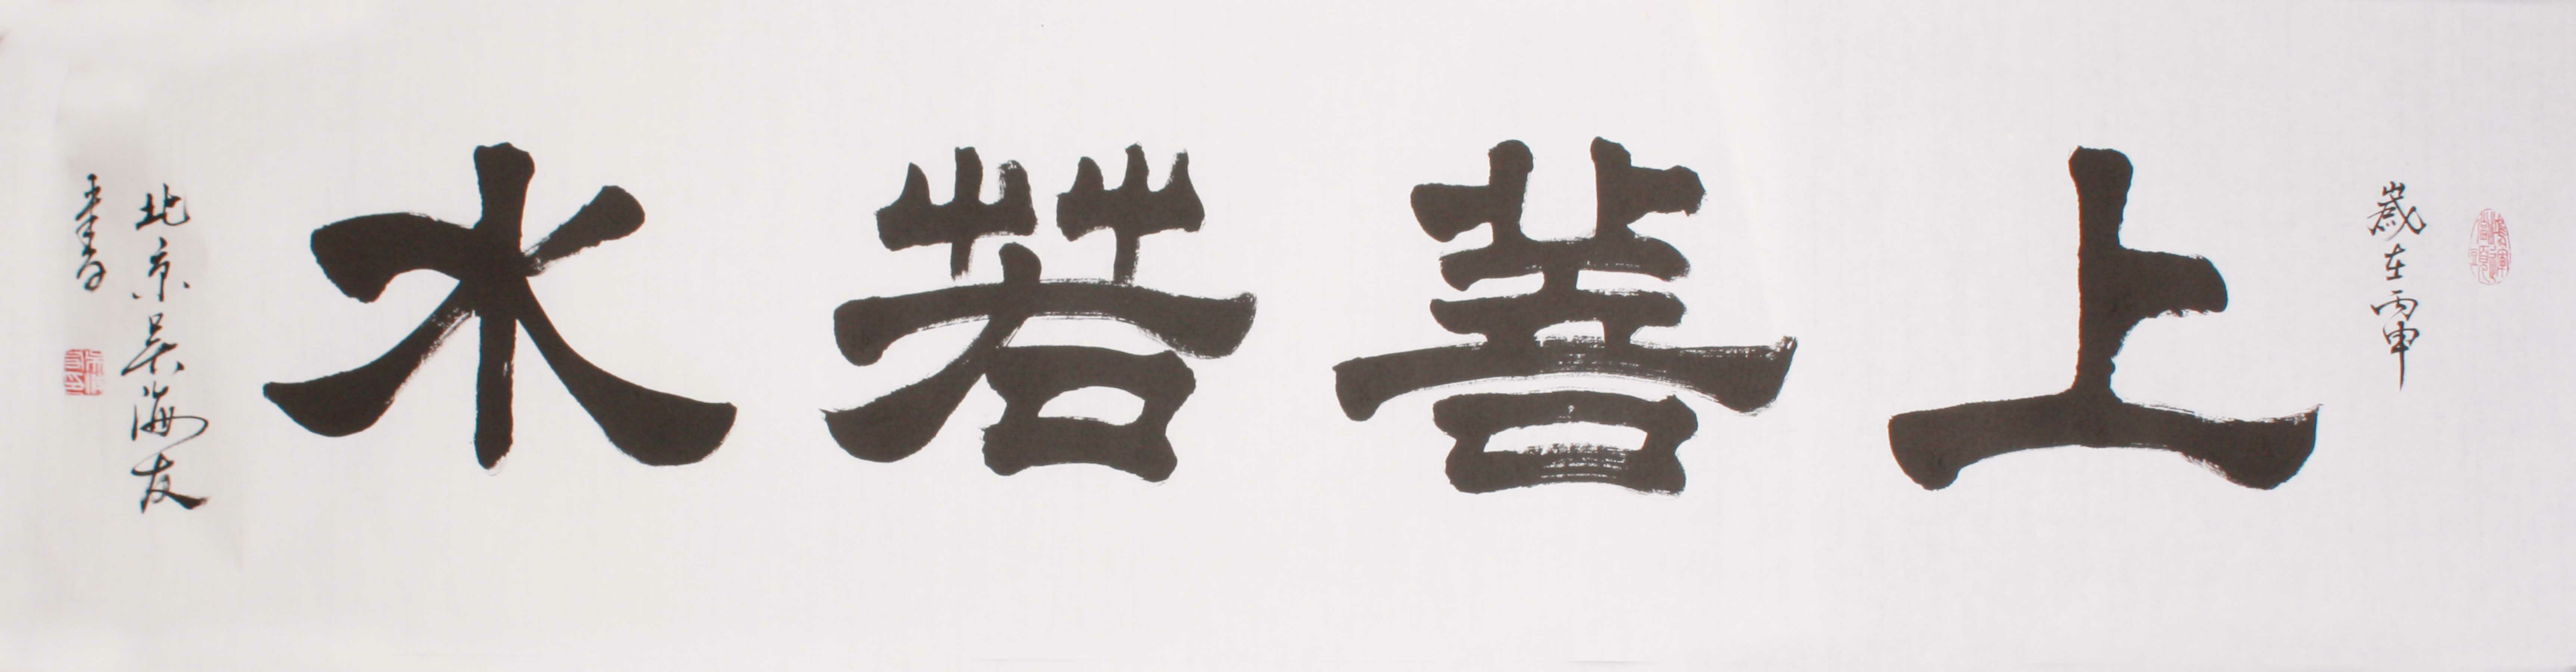 歲在丙申
上善若水
北京吴海友
書